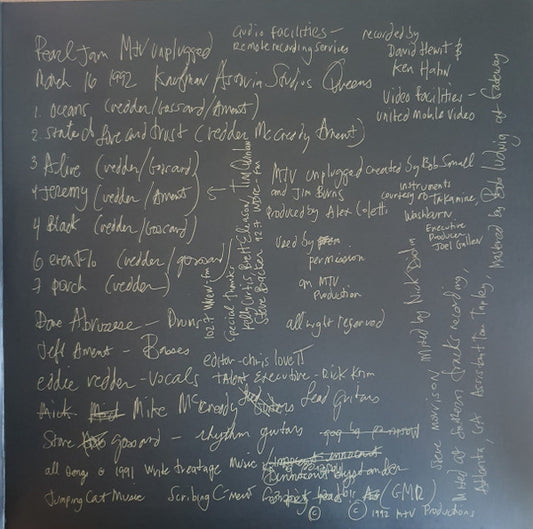 Pearl Jam MTV unplugged
March 16 1992 Kaufman Astoria Studios Queens
1. Oceans (vedder/Gossard/Ament)
2. State of love and trust (vedder McCready Ament)
3 Alive (vedder/Gossard)
4 Jeremy (vedder/Ament)
4 Black (vedder/Gossard)
6 evenflo (vedder/gossard)
7 porch (vedder)
Dave Abruzzese – Drums
Jeff Ament – Basses
eddie vedder – vocals
Mike McCready Lead guitars
Stone gossard – rhythm guitars
all songs © 1991 write treatage music
Jumping Cat Music Scribing C-ment (GMR)
© © 1992 MTV Productions
audio facilities –
Remote recording services
recorded by
David Hewitt &
Ken Hahn
video facilities –
united mobile video
MTV unplugged created by Bob Small
and Jim Burns
produced by Alex Coletti
instruments
courtesy of Takamine,
Washburn
Executive
Producer
Joel Gallen
used by
permission
an MTV
Production
all right reserved
editor – chris lovett
talent Executive – Rick Krim
102.7 WNEW-fm
special thanks
Kelly Curtis, Brett Eliason,
Steve Backer 92.7 WDRE-fm
Mixed by Nick DiDia
Steve morrison
Mixed at southern tracks recording,
Atlanta, GA Assisted by
Mastered by Bob Ludwig at Gateway